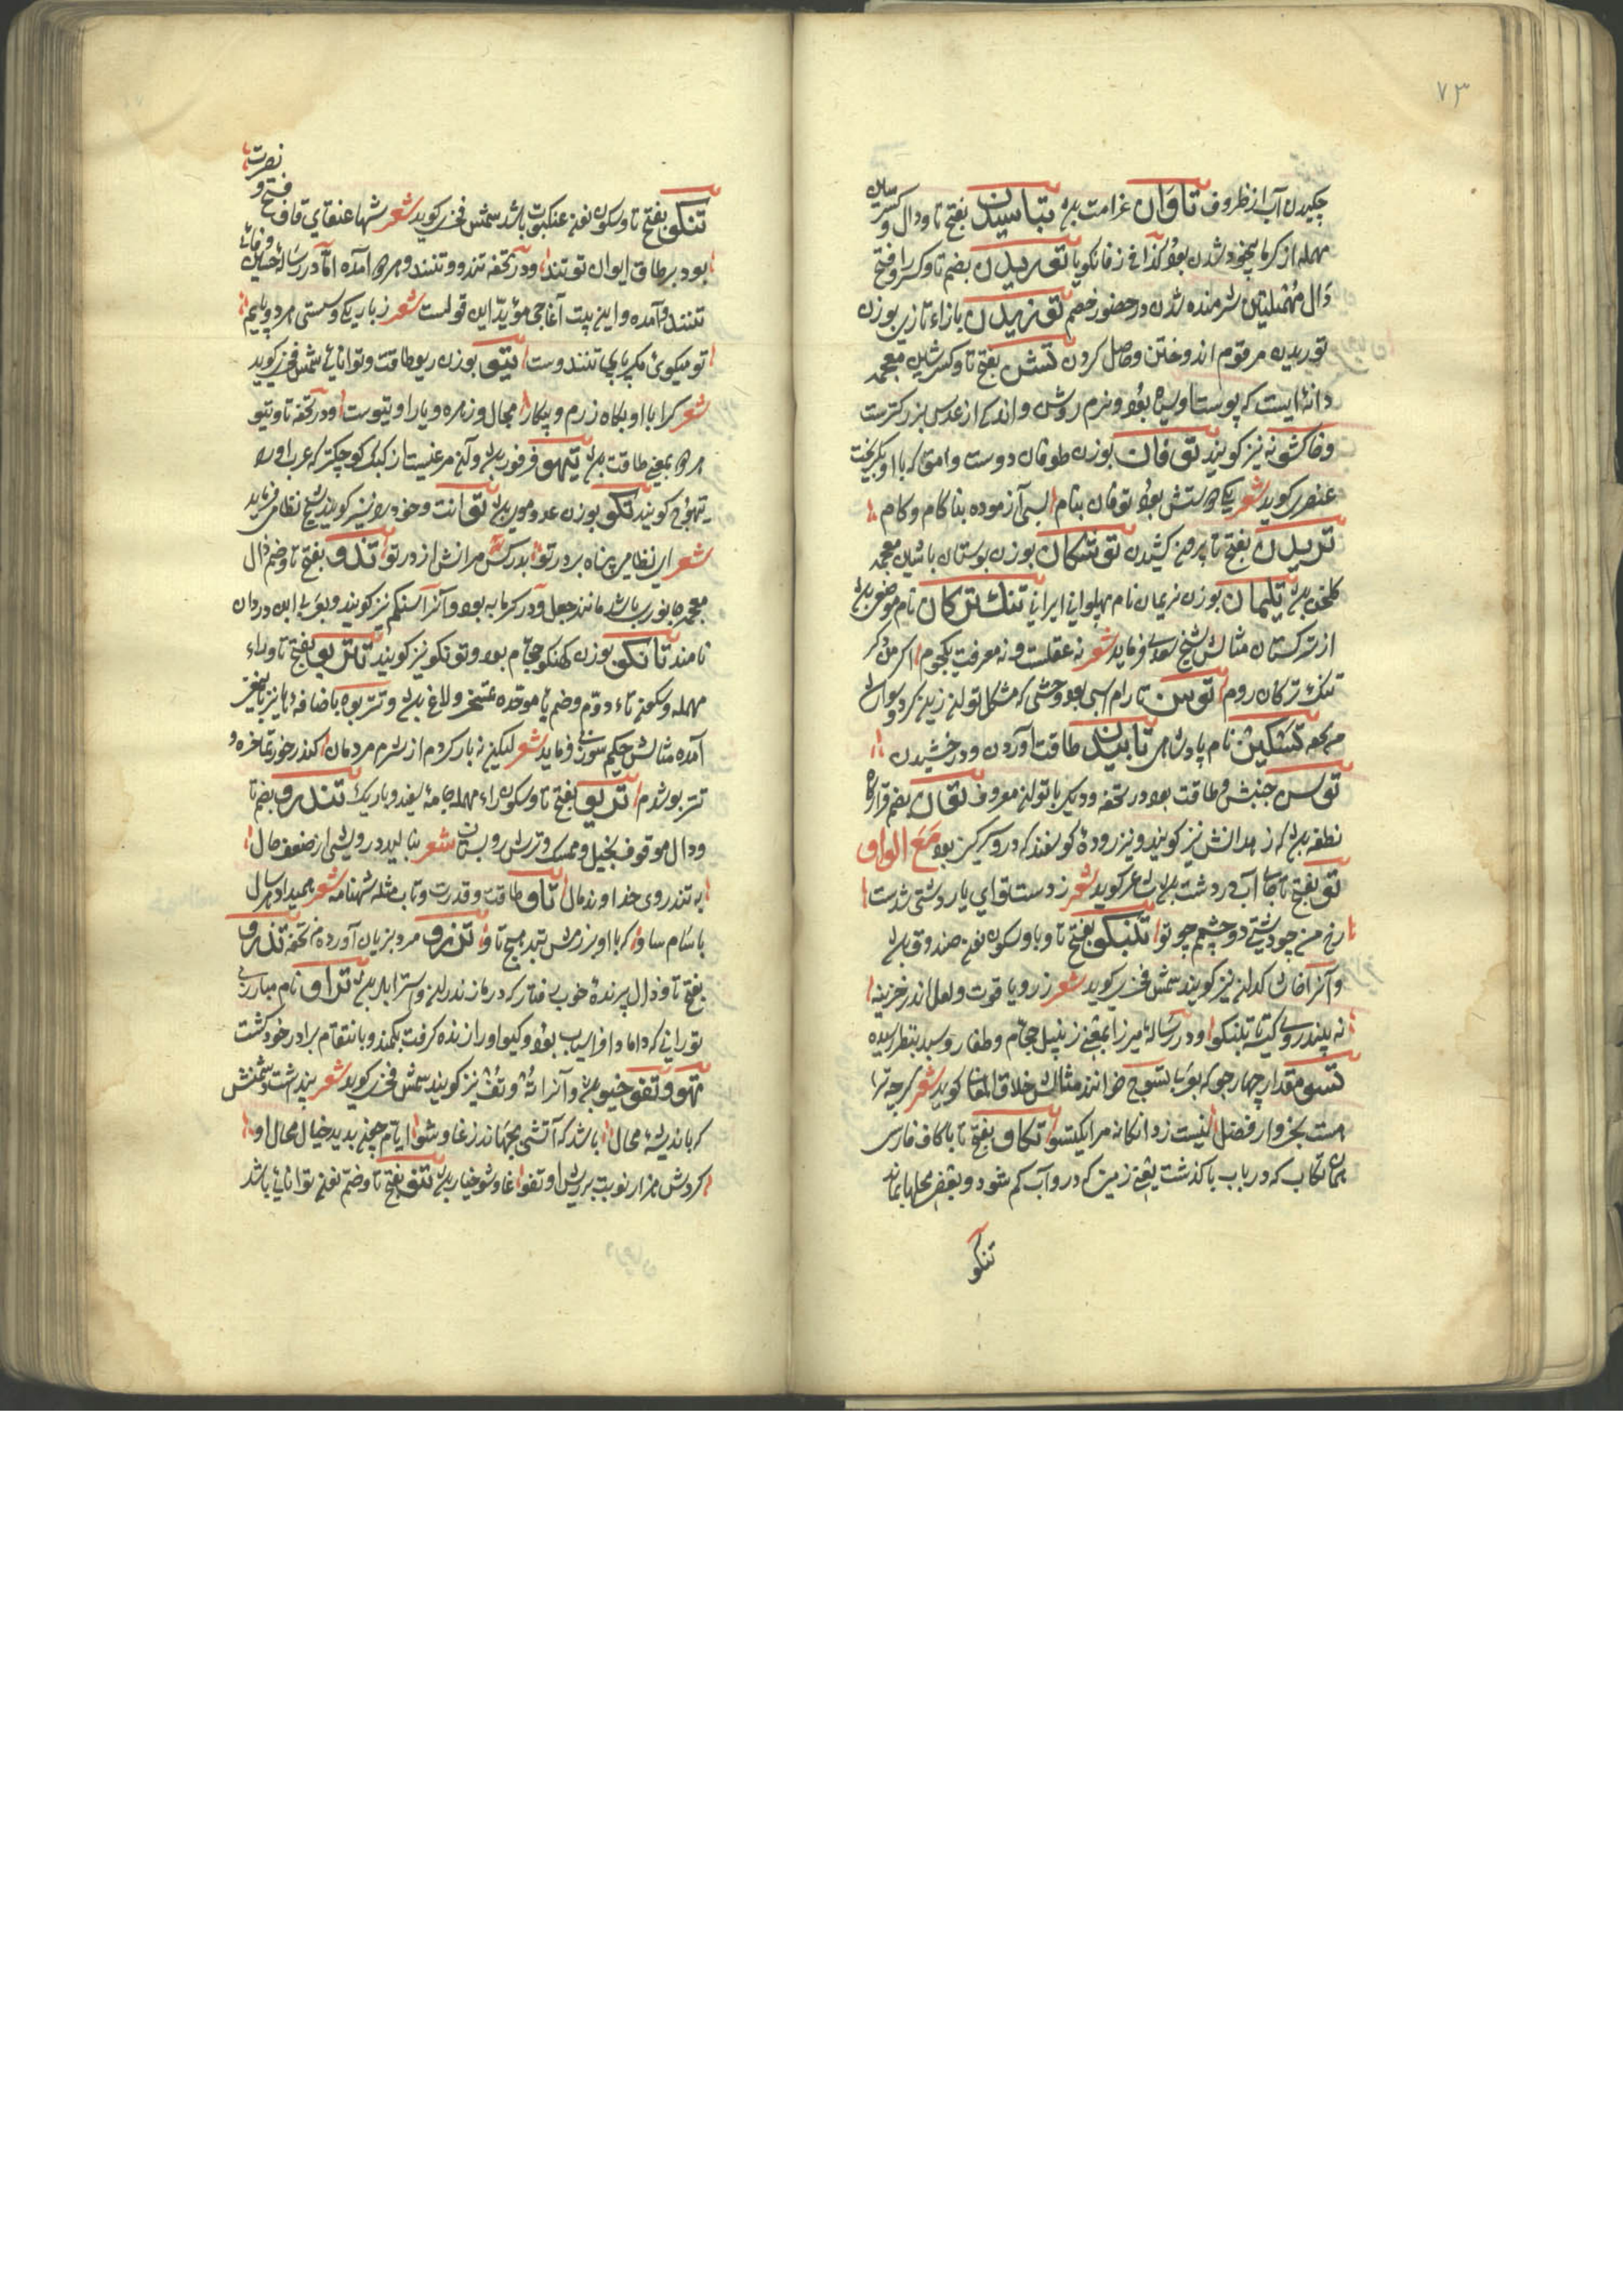 ٧٣
چکیدن آب از ظروف تاوان غرامت بود تباسیدن بفتح تا و دال و کسر سین
مهمله از کرما بیخود شدن بود کذا فی زفانکویا توریدن بضم تا و کسر را و فتح
دال مهملتین شرمنده شدن در حضور خصم توزیدن بازاء تازی بوزن
توریدن مرقوم اندوختن و حاصل کردن تشن بفتح تا و کسر شین معجمه
دانه ایست که پوست او سیاه بود و نرم روشن و اندکی از عدس بزرکترست
و خاکشی نیز کویند توفان بوزن طوفان دوست وامق که با او بکریخت
عنصری کوید شعر یکی دوستش بود توفان بنام بسی آزموده بناکام و کام
تریدن بفتح تا بیرون کشیدن توشکان بوزن بوستان با شین معجمه
کلخن بود تلیمان بوزن نریمان نام پهلوانی ایرانی تنک ترکان نام موضعی بود
از ترکستان مثالش شیخ سعدی فرماید شعر نه عقلست و نه معرفت یکجوم اکر من دکر
تنک ترکان روم توسن نارام اسبی بود وحشی که مشکل تواند زین کرد و سواران
مرکب تشکین نام پادشاهی تابیدن طاقت آوردن و درخشیدن
توس جنبش و طاقت بود در تحفه و دیک با توله معروف توان بضم قرارکاه
نطفه بود که زهدانش نیز کویند و نیز روده کوسفند که درو سرکین بود مع الواو
تو بفتح تا جای آب در دشت بود شاعر کوید شعر ز دست تو ای یار دشتی شدست
رخ من چو دشتی دو چشمم چو تو تبنکو بفتح تا و با و سکون نون صندوق بود
و آنرا خان کدله نیز کویند شمس فخری کوید شعر زر و یاقوت و لعل اندر خزینه
نه بیند روی کیتی تا تبنکو و در رساله میرزا بمعنی زنبیل حجام و طغار و سبد بنظر رسیده
تسو مقدار چهار جو که بود تا بتسوج خوانند مثالش خلاق المعانی کوید شعر کرچه ترا
هست بخروار فضل نیست زدانکانه مرا یکتسو تکاو بفتح تا با کاف فارسی
همان تکاب که در باب با کذشت یعنی زمینی که درو آب کم شود و بعضی محلها بماند
تنکو
نصرت
تنکو بفتح تا و سکون نون عنکبوت باشد شمس فخری کوید شعر شها عنقای قاف فتح و
بود بر طاق ایوان تو تندو و در تحفه تندو و تنند و هر دو آمده اما در رساله حسین وفائی
تنند و آمده و این بیت آغاجی مؤید این قولست شعر ز باریکی و سستی هر دو پایم
تو میکوئی مکر پای تنندوست تیو بوزن ریو طاقت و توانائی شمس فخری کوید
شعر کرا با او بکاه رزم و پیکار مجال و زهره و یارا و تیوست و در تحفه تاو و تیو
هر دو بمعنی طاقت بود تیهو فرفور بود و آن مرغیست از کبک کوچکتر که عرب او را
تیهوج کویند تکو بوزن عدو موی بود تو انت و خود را نیز کویند شیخ نظامی فرماید
شعر ای نظامی پناه پرور تو بدر کس مرانش از در تو تذو بفتح تا و ضم ذال
معجمه جانوری باشد مانند جعل و در کرمابه بود و آنرا آسنکم نیز کویند و بعربی ابن وردان
نامند تانکو بوزن کهنکو حجام بود و تونکو نیز کویند تتربو بفتح تا و راء
مهمله و سکون تاء دوم و ضم با موحده تمسخر و لاغ بود و تتربوه باضافه ها نیز باین معنی
آمده مثالش حکیم سوزنی فرماید شعر لیکن نه بار کردم از شرم مردمان اکندر خور تماخره و
تتربو شدم تریو بفتح تا و سکون راء مهمله جامه سفید و باریک تندرو بضم تا
و دال موقوف بخیل و ممسک و ترش روی شعر بنالید درویشی از ضعف حال
به تندروی خداوند مال تاو طاقت و قدرت و تاب مثله شهنامه شعر همیداد هر سال
با سام ساو که با او برزمش نبد هیچ تاو تذرو مرو بزبان آورده م تحفه تذرو
بفتح تا و ذال پرنده خوب رفتار که در مازندران و استراباد بود تژاو نام مبارزی
تورانی که داماد افراسیاب بود و کیو او را زنده کرفت بکمند و بانتقام برادر خود کشت
تهو و تفو خیو بود و آنرا ته و تف نیز کویند شمس فخری کوید شعر بندشت دشمنش
که باندیشه محال باشد که آتشی بجهاند ز غاوشو ایام چون بدید خیال محال او
کردش هزار نوبت بر ریش او تفو غاوشو خیار بود تنو بفتح تا و ضم نون توانائی باشد